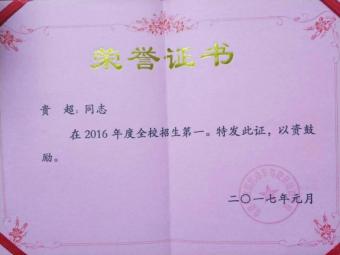 荣誉证书
贵 超：同志
在2016年度全校招生第一。特发此证，以资鼓
励。
二〇一七年元月